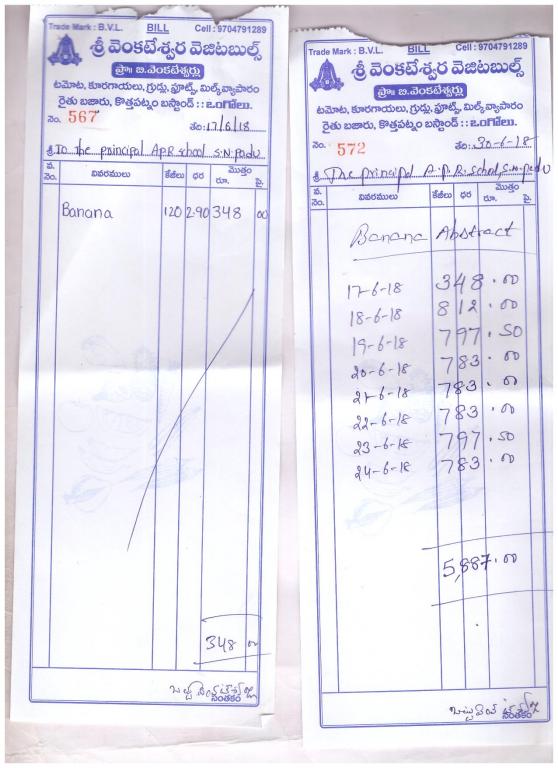 Trade Mark : B.V.L. BILL Cell : 9704791289
శ్రీ వెంకటేశ్వర వెజిటబుల్స్
ప్రొః బి.వెంకటేశ్వర్లు
టమోట, కూరగాయలు, గ్రుడ్లు, ఫ్రూట్స్, మిల్క్ వ్యాపారం
రైతు బజారు, కొత్తపట్నం బస్టాండ్ :: ఒంగోలు.
నెం. 567 తేది: 17/6/18
శ్రీ To the principal APR school S.N. padu
వ. నెం. వివరములు కేజీలు ధర మొత్తం రూ. పై.
Banana 120 2.90 348 00
348 00
సంతకం
Trade Mark : B.V.L. BILL Cell : 9704791289
శ్రీ వెంకటేశ్వర వెజిటబుల్స్
ప్రొః బి.వెంకటేశ్వర్లు
టమోట, కూరగాయలు, గ్రుడ్లు, ఫ్రూట్స్, మిల్క్ వ్యాపారం
రైతు బజారు, కొత్తపట్నం బస్టాండ్ :: ఒంగోలు.
నెం. 572 తేది: 30-6-18
శ్రీ The principal A.P.R. school, S.N. padu
వ. నెం. వివరములు కేజీలు ధర మొత్తం రూ. పై.
Banana Abstract
17-6-18 348.00
18-6-18 812.00
19-6-18 797.50
20-6-18 783.00
21-6-18 783.00
22-6-18 783.00
23-6-18 797.50
24-6-18 783.00
5,887.00
సంతకం